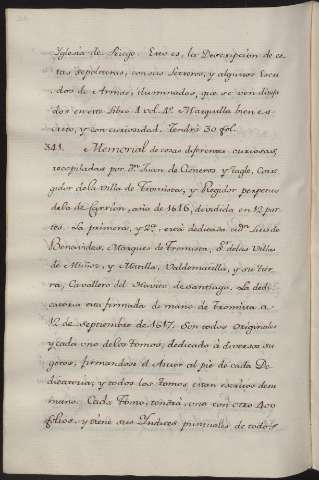 Iglesia de Priego. Esto es, la Descripcion de es-
tas sepulturas, con sus Letreros, y algunos Escu-
dos de Armas, iluminados, que se ven dibuja-
dos en este Libro 1 vol. 4º. Marquilla bien es-
crito, y con curiosidad. Tendrá 30 fol.
341. Memorial de cosas diferentes, curiosas,
recopiladas por Dn. Juan de Cisneros y tagle, Corre-
gidor de la Villa de Fromista, y Regidor perpetuo
de la de Carrion, año de 1616, dividida en 12 par-
tes. La primera, y 2ª. está dedicada a Dn. Luis de
Benavides, Marques de Fromista, Sr. de las Villas
de Muñoz, y Matilla, Valdematilla, y su tier-
ra, Cavallero del Havito de Santiago. La dedi-
catoria esta firmada de mano de Fromista a
12 de Septiembre de 1617. Son todos originales
y cada uno de los tomos, dedicada á diversos su-
getos, firmandose el Autor al pie de cada De-
dicatoria, y todos los tomos estan escritos de su
mano. Cada Tomo, tendrá, uno con otro 400
folios, y tiene sus Yndices puntuales de todo.